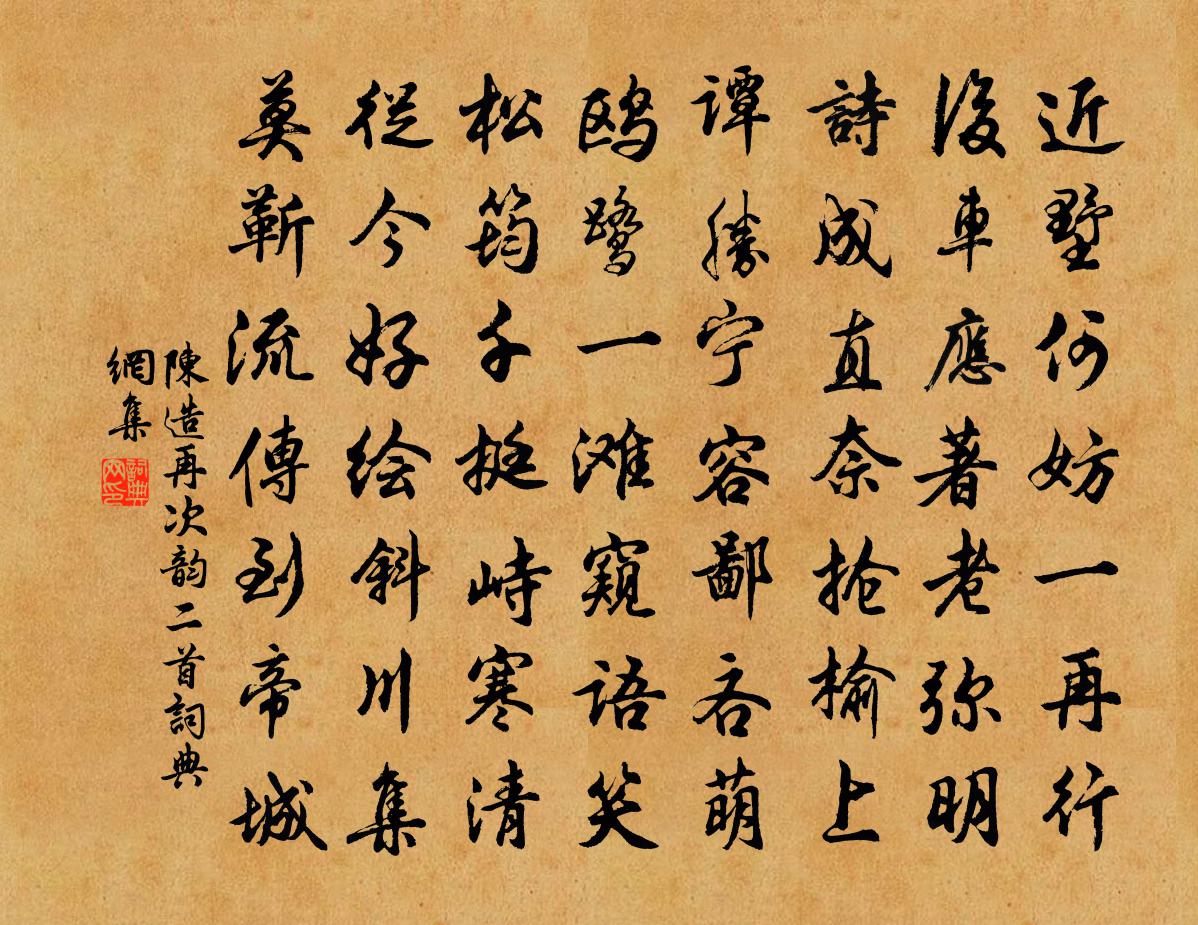 近墅何妨一再行
後車應著老弥明
詩成直奈抢榆上
谭勝宁容鄙吝萌
鸥鹭一滩窺语笑
松筠千挺峙寒清
從今好绘斜川集
莫靳流傳到帝城
陳造再次韵二首詞典
網集
詞典